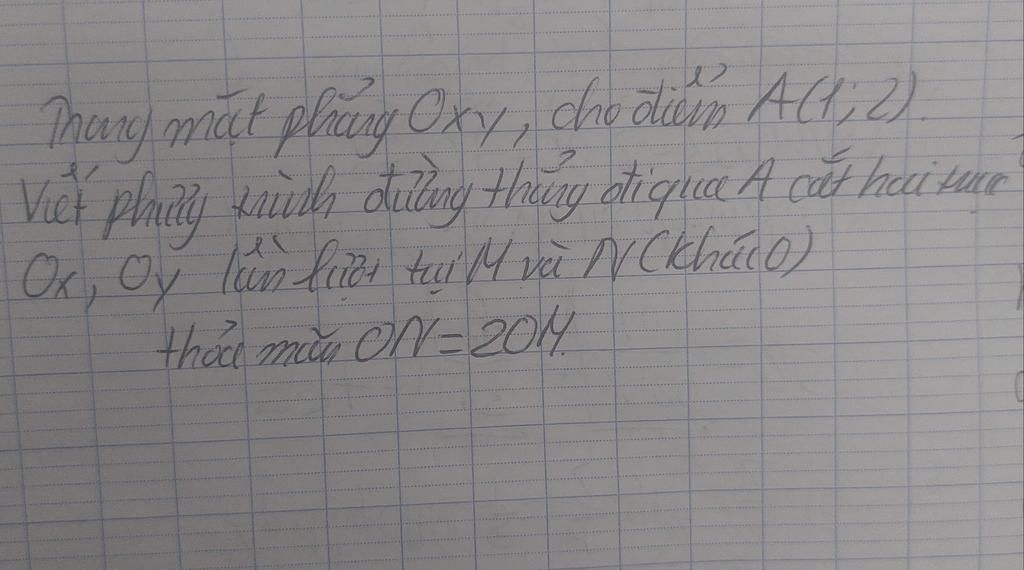 Trong mặt phẳng Oxy, cho điểm A(1; 2).
Viết phương trình đường thẳng đi qua A cắt hai trục
Ox, Oy lần lượt tại M và N (khác O)
thỏa mãn ON = 2OM.